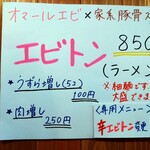 オマールエビ×家系豚骨ス
エビトン
850
(ラーメン
★うずら増し(5コ)
100円
★肉増し
250円
※細麺です
大盛でき
<専用メニュー
辛エビトン